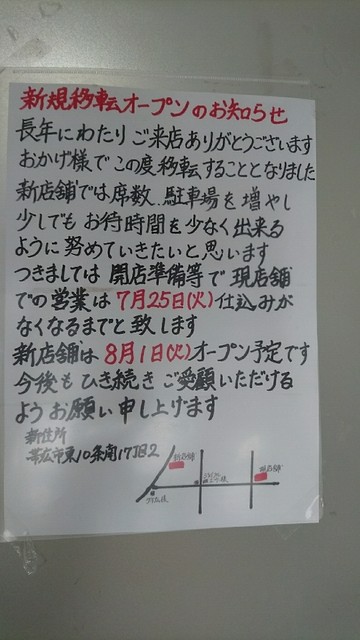 新規移転オープンのお知らせ
長年にわたりご来店ありがとうございます
おかげ様でこの度移転することとなりました
新店舗では席数、駐車場を増やし
少しでもお待時間を少なく出来る
ように努めていきたいと思います
つきましては開店準備等で現店舗
での営業は7月25日(火)仕込みが
なくなるまでと致します
新店舗は8月1日(火)オープン予定です
今後もひき続きご愛顧いただける
ようお願い申し上げます
新住所
帯広市東10条南17丁目2
新店舗
現店舗